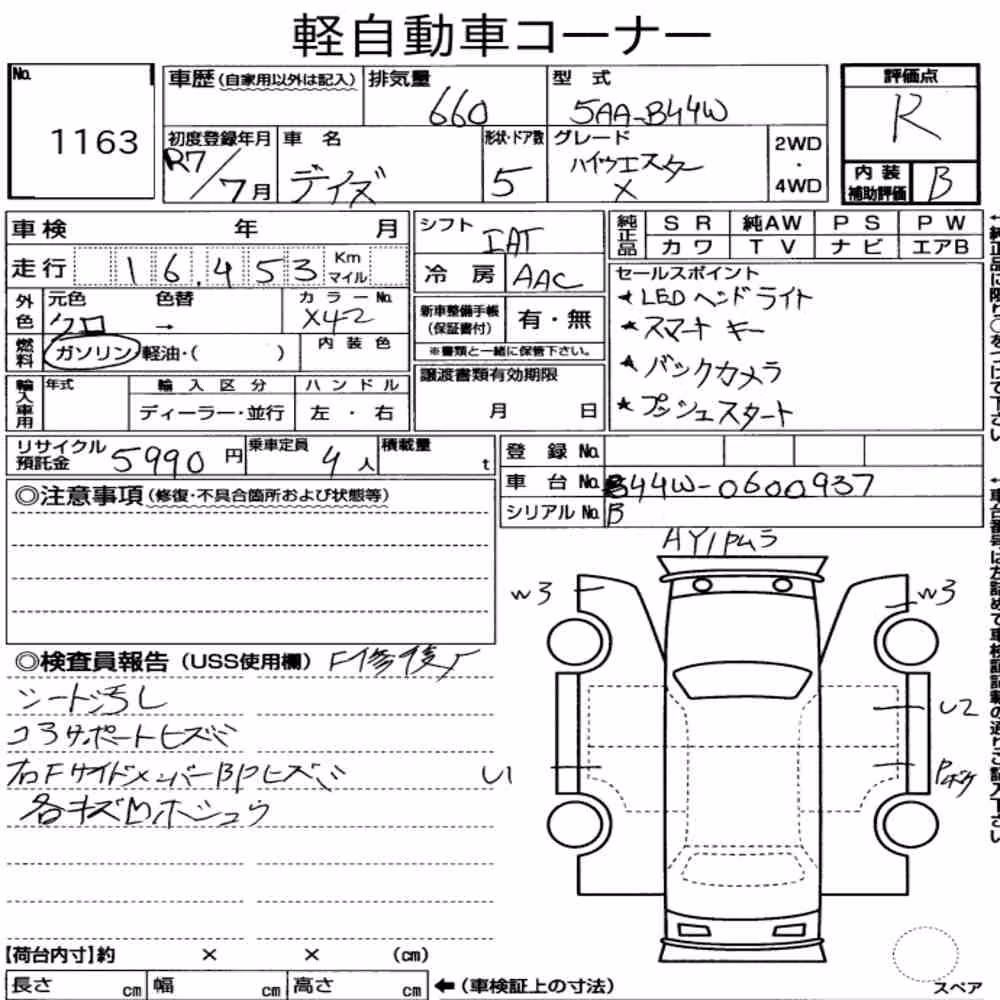 軽自動車コーナー
No. 1163
車歴(自家用以外は記入) 排気量 660 型式 5AA-B44W 評価点 R
初度登録年月 R7/7月 車名 デイズ 形状・ドア数 5 グレード ハイウェイスター X 2WD・4WD 内装補助評価 B
車検 年 月 シフト IAT 純正品 SR 純AW PS PW
カワ TV ナビ エアB
走行 16,453 Km マイル 冷房 AAC
セールスポイント
★LEDヘッドライト
★スマートキー
★バックカメラ
★プッシュスタート
外色 元色 クロ 色替 → カラーNo. X42 新車整備手帳(保証書付) 有・無
※書類と一緒に保管下さい。
燃料 ガソリン・軽油・( ) 内装色
譲渡書類有効期限 月 日
輸入車用 年式 輸入区分 ディーラー・並行 ハンドル 左・右
リサイクル預託金 5990円 乗車定員 4人 積載量 t
登録No.
車台No. B44W-0600937
シリアルNo. B
◎注意事項(修復・不具合箇所および状態等)
◎検査員報告(USS使用欄) F修復歴
シート汚し
コアサポートヒズミ
右FサイドメンバーBPヒズミ
各キズ凹ホシュウ
AY1
W3 W3
U2
U1
【荷台内寸】約 × × (cm)
長さ cm 幅 cm 高さ cm ←(車検証上の寸法)
スペア